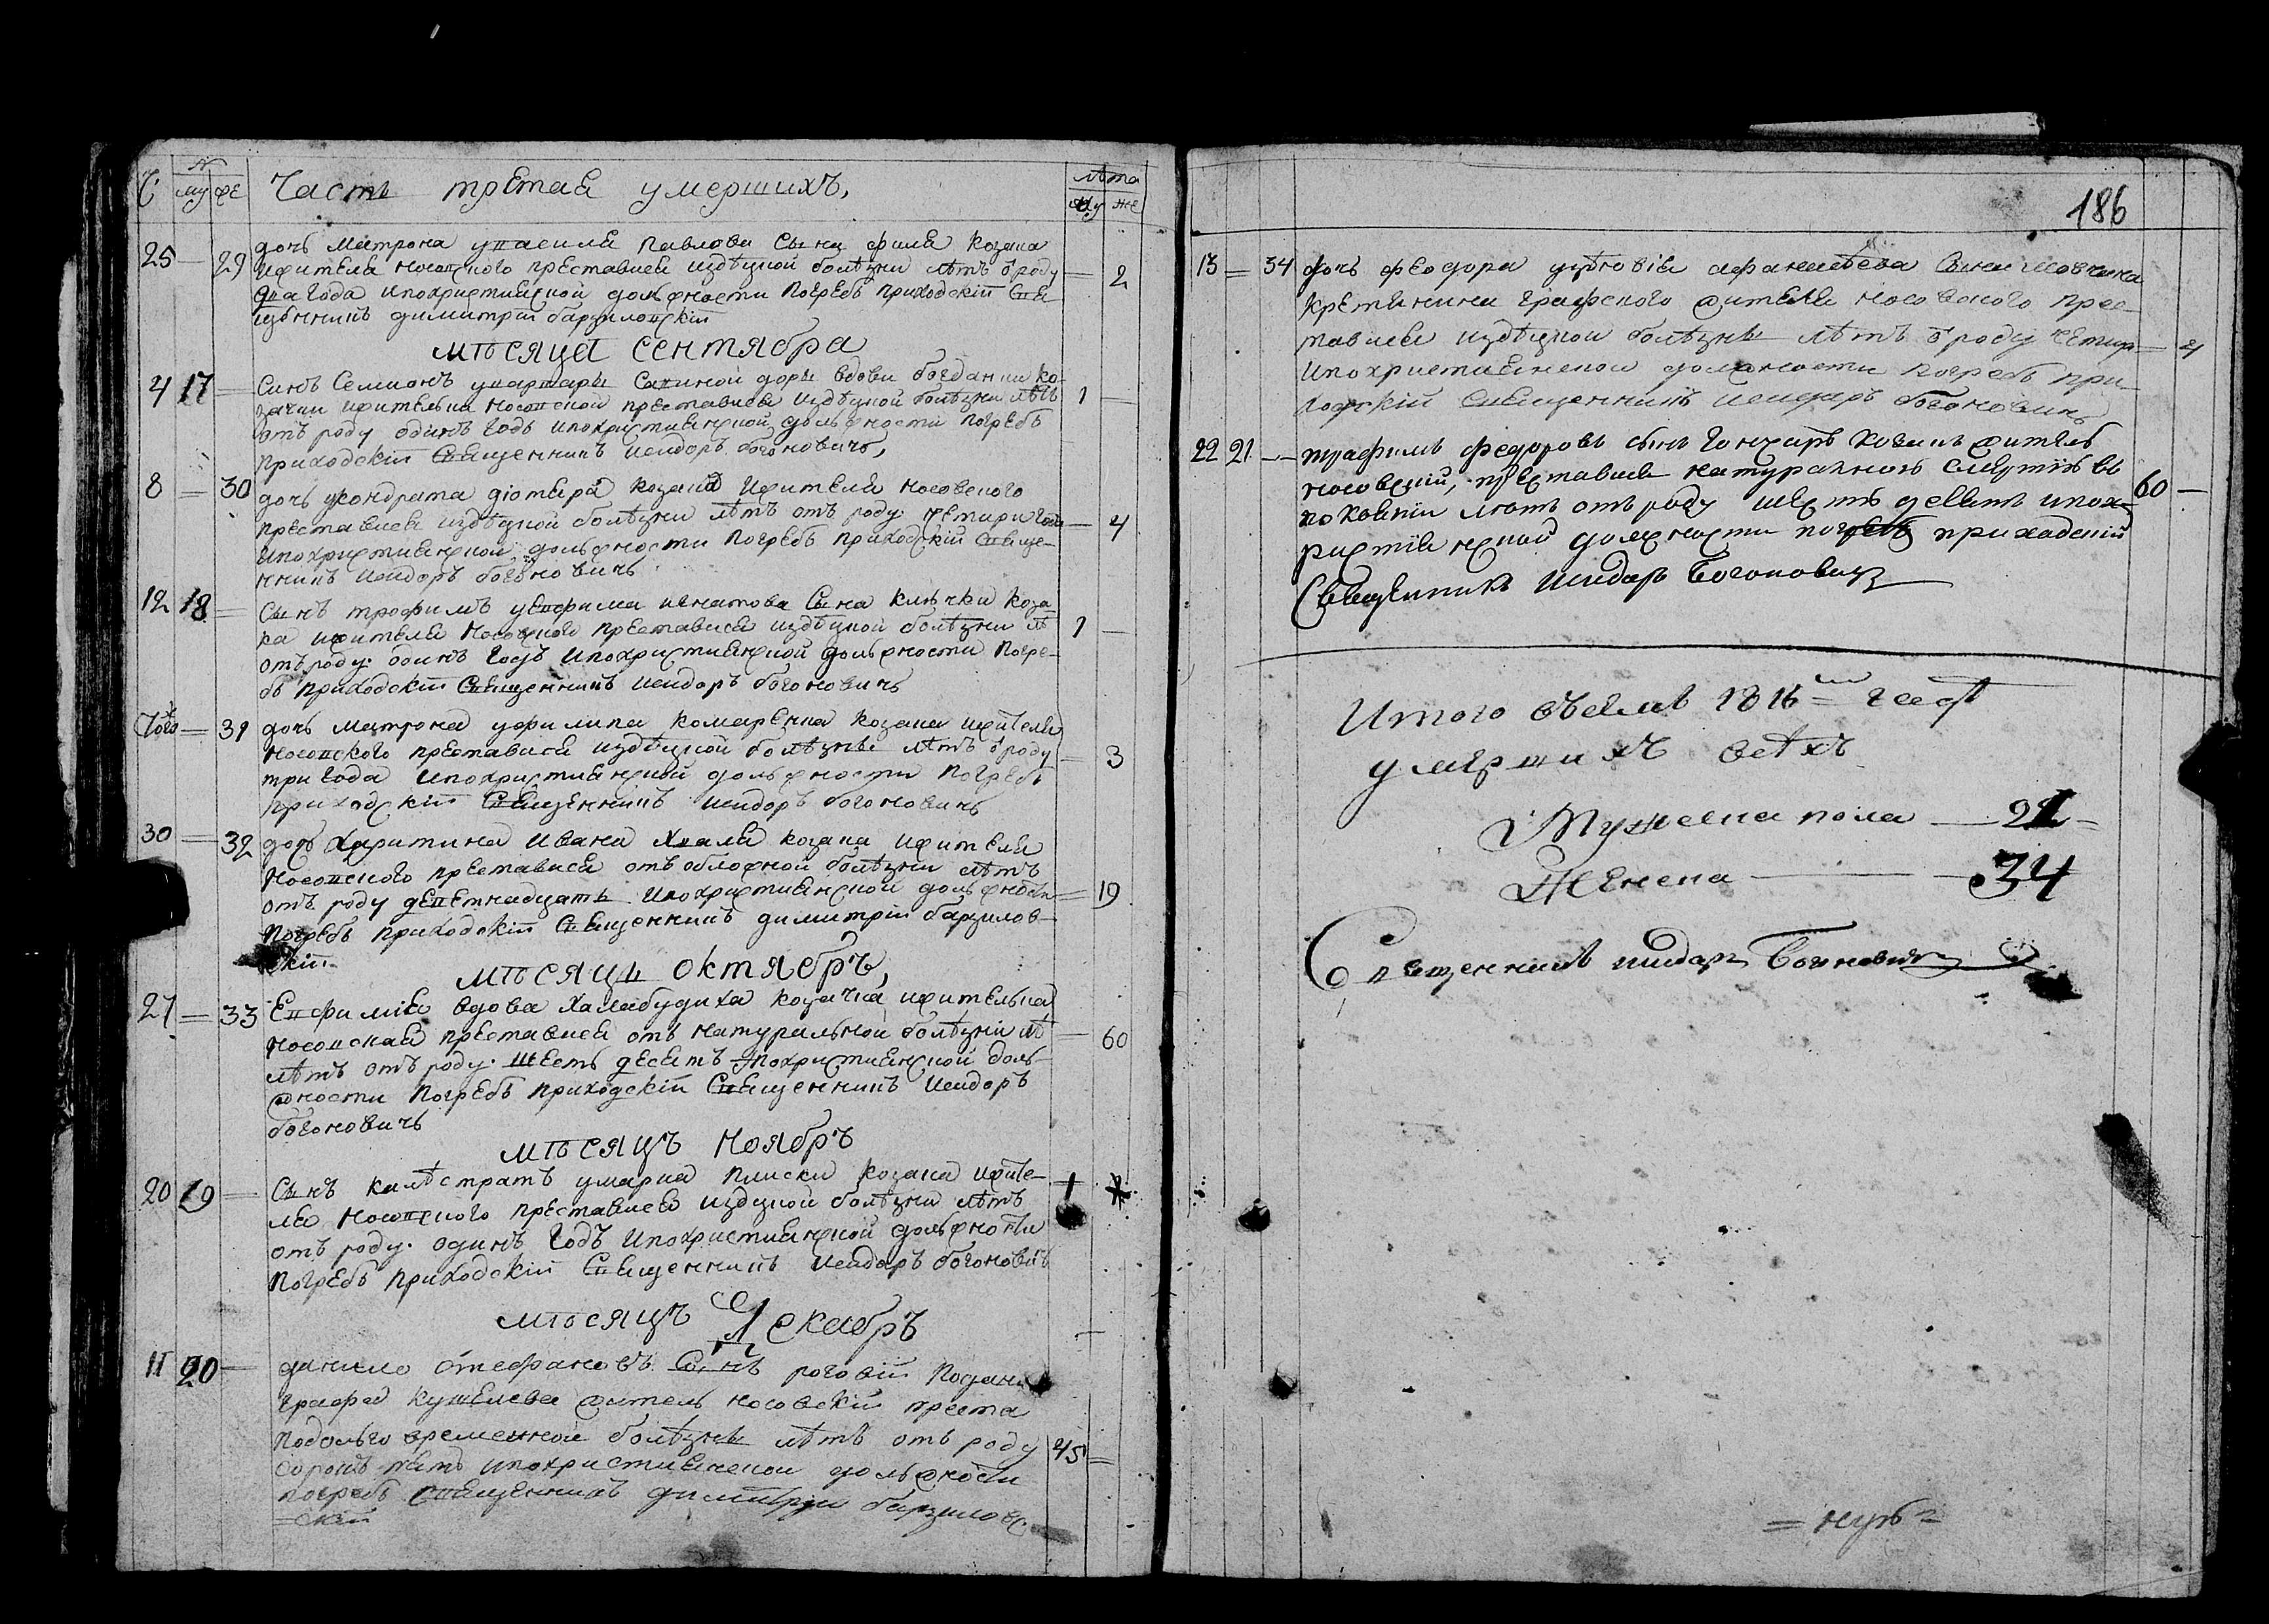 Ч N му фе Часть третая умершихъ, лѣта му же
25 — 29 дочь Матрона уВасиля Павлова Сына филя козака
ижителя носовского преставися издѣцкой болѣзни лѣтъ ѿ роду — 2
Два года ипохристиянской должности Погребъ приходскій Свя-
щенникъ димитрій барзиловскій
мѣсяца сентября
4 17 — Синъ Семионъ
зачки ижителки носовской преставися издѣцкой болѣзни лѣтъ 1 —
отъ роду одинъ годъ ипохристиянской должности Погребъ
приходскій Священникъ исидоръ богоновичъ,
8 = 30 дочь уКондрата козака ижителя носовского
преставися издѣцкой болѣзни лѣтъ отъ роду четири года — 4
ипохристиянской должности Погребъ приходскій Свяще-
нникъ исидоръ богоновичъ
12 18 = Сынъ трофимъ уЕвфима игнатова Сына клѣчки коза-
ка ижителя носовского преставися издѣцкой болѣзни лѣ 1 —
отъ роду одинъ годъ ипохристиянской должности Погре-
бъ приходскій Священникъ исидоръ богоновичъ
Того = 31 дочь матрона уфилипа комаренка козака ижителя
носовского преставися издѣцкой болѣзнѣ лѣтъ ѿ роду — 3
три года ипохристиянской должности Погребъ
приходскій Священникъ исидоръ богоновичъ
30 = 32 дочь Харитина ивана Хваля козака ижителя
носовского преставися отъ обложной болѣзни лѣтъ
отъ роду деветнадцать ипохристиянской должности = 19
Погребъ приходскій Священникъ димитрій барзилов-
скій
мѣсяцъ октябръ,
27 = 33 Евфимія вдова Халабудиха козачка ижителка
носовская преставися отъ натуральной болѣзни лѣ — 60
лѣтъ отъ роду шесть десятъ ипохристиянской долъ-
жности Погребъ приходскій Священникъ исидоръ
богоновичъ
мѣсяцъ ноябръ
20 19 — Сынъ калѣстратъ умарка плиски козака ижите- 1
ля носовского преставися издецкой болѣзни лѣтъ
отъ роду одинъ годъ ипохристиянской должности
Погребъ приходскій Священникъ исидоръ богоновичъ
мѣсяцъ Декабръ
11 20 — данило стефановъ Сынъ роговій Подани
графа кушелева житель носовскій преста
подолговременной болѣзнѣ лѣтъ отъ роду 45 =
сорокъ пять ипохристиянской должности
погребъ Священникъ димитрій барзиловс
=скій
186
13 = 34 дочь феодора афанасиева Сына шовчика
крестянина графского жителя носовского прес-
тавися издѣцкой болѣзнѣ лѣтъ ѿ роду четири — 4
ипохристиянской должности погребъ при-
ходскій Священникъ исидоръ богоновичъ
22 21 — трафимъ федоровъ сынъ Гончаръ козакъ житель
носовскій, преставися натуралною смертію въ
покаяніи лѣтъ отъ роду шесть десятъ ипох- 60 —
ристіянской должности погребъ приходскій
Священникъ Исидоръ Богоновичъ
Итого въ 1816 году
умершихъ всѣхъ
Мужеска пола — 21 =
Женска — 34
Священникъ исидоръ Богоновичъ